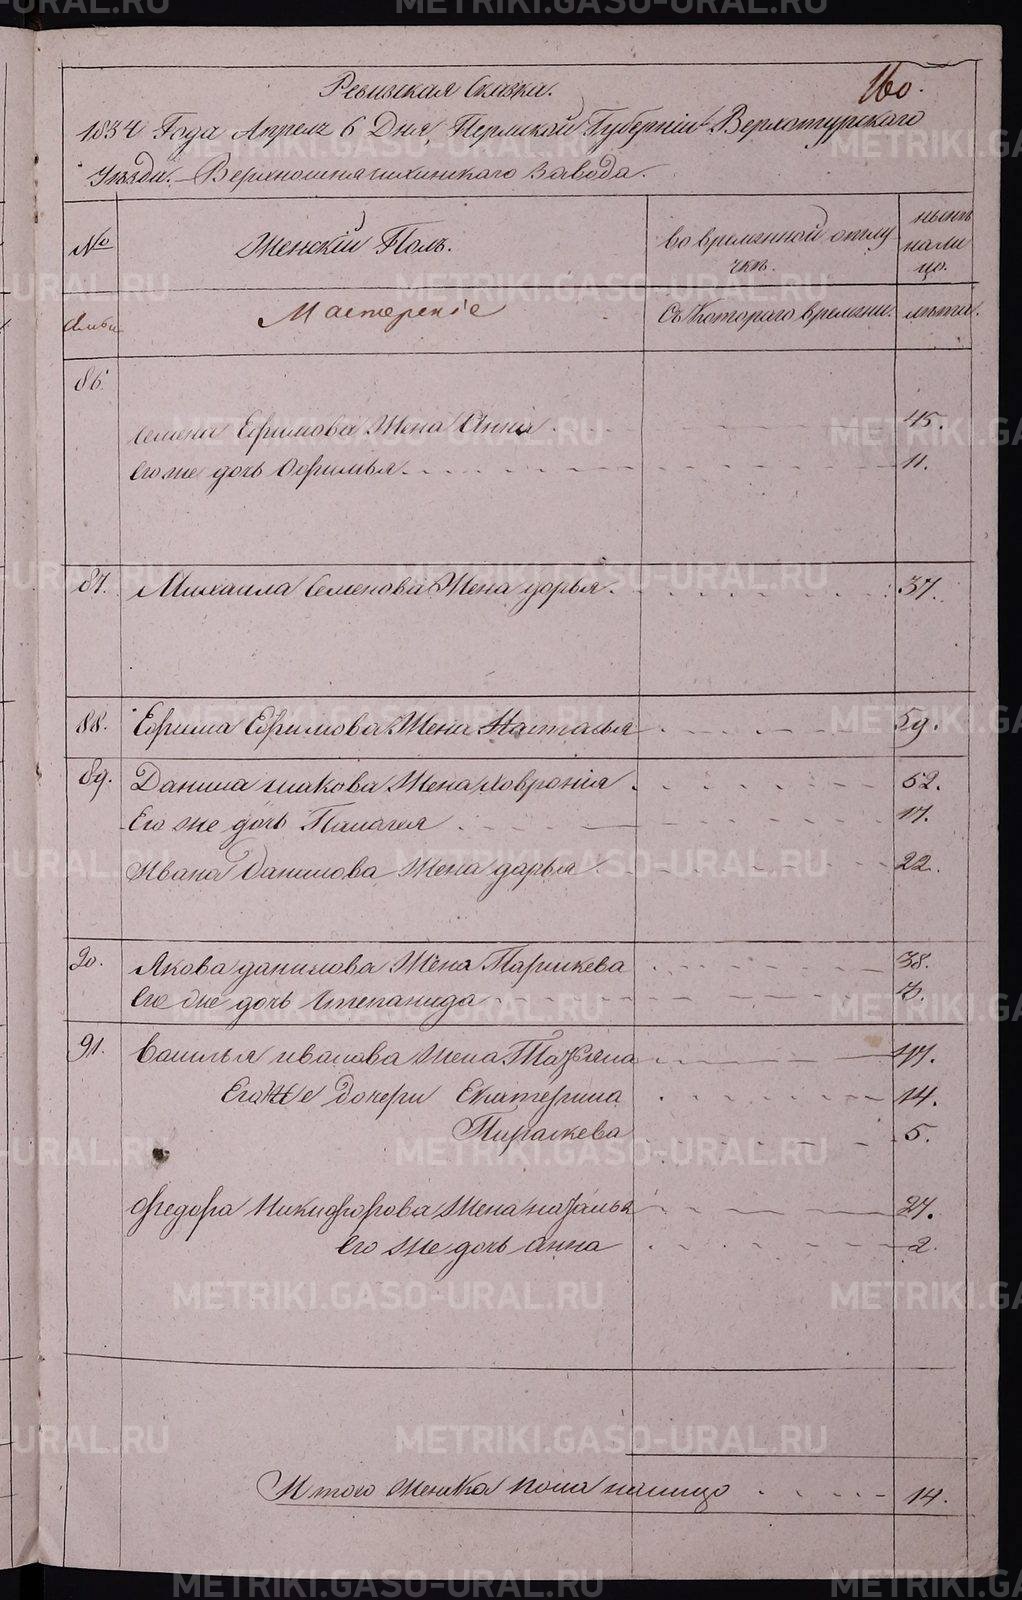 160.
Ревизская Сказка.
1834 Года Апреля 6 Дня, Пермской Губернии Верхотурскаго
Уезда. Верхношнягихинскаго Завода.
№ Женскій Полъ. во временной отлу ныне
чке. нали
цо.
Мастерскіе Съ Котораго времени. лета.
86.
Семена Ефимова Жена Анна 45.
Его же дочь Офимья 11.
87. Михаила Семенова Жена дарья. 37.
88. Ефима Ефимова Жена Наталья 59.
89. Данила иакова Жена ховронія 52.
Его же дочь Палагея 17.
Ивана Данилова Жена дарья 22.
90. Якова данилова Жена Парискева 38.
Его же дочь Степанида
91. Василья иванова Жена Татьяна 47.
Его Же Дочери Екатерина 14.
Параскева 5.
Федора Никифорова Жена наталья 27.
Его же дочь анна 2.
Итого женска пола налицо 14.
METRIKI.GASO-URAL.RU